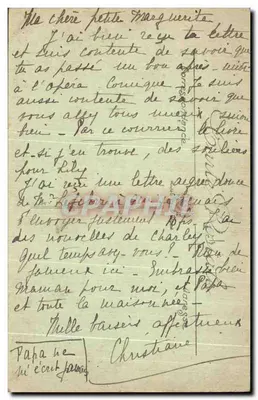 Ma chère petite Marguerite
J'ai bien reçu ta lettre
et suis contente de savoir que
tu as passé un bon après-midi
à l'opéra Comique. Je suis
aussi contente de savoir que
vous allez tous mieux
bien - Par ce courrier le livre
et si j'en trouve, des souliers
pour Lily
J'ai reçu une lettre aigre douce
de Mr
t'envoyer justement J'ai
des nouvelles de Charles
quel temps avez vous? Rien de
fameux ici. Embrasse bien
Maman pour moi, et Papa
et toute la maisonnée
Mille baisers affectueux
Christiane
Papa ne
m'écrit jamais